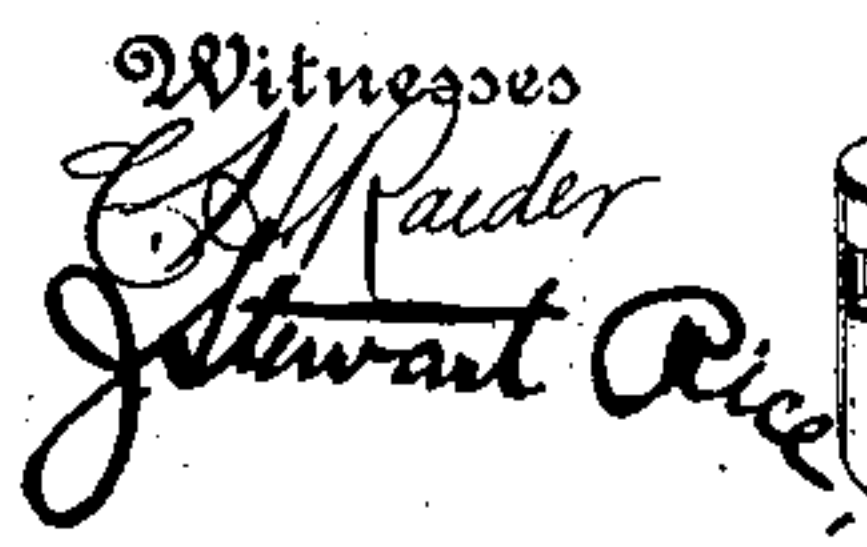 Witnesses
Raeder
J Stewart Rice